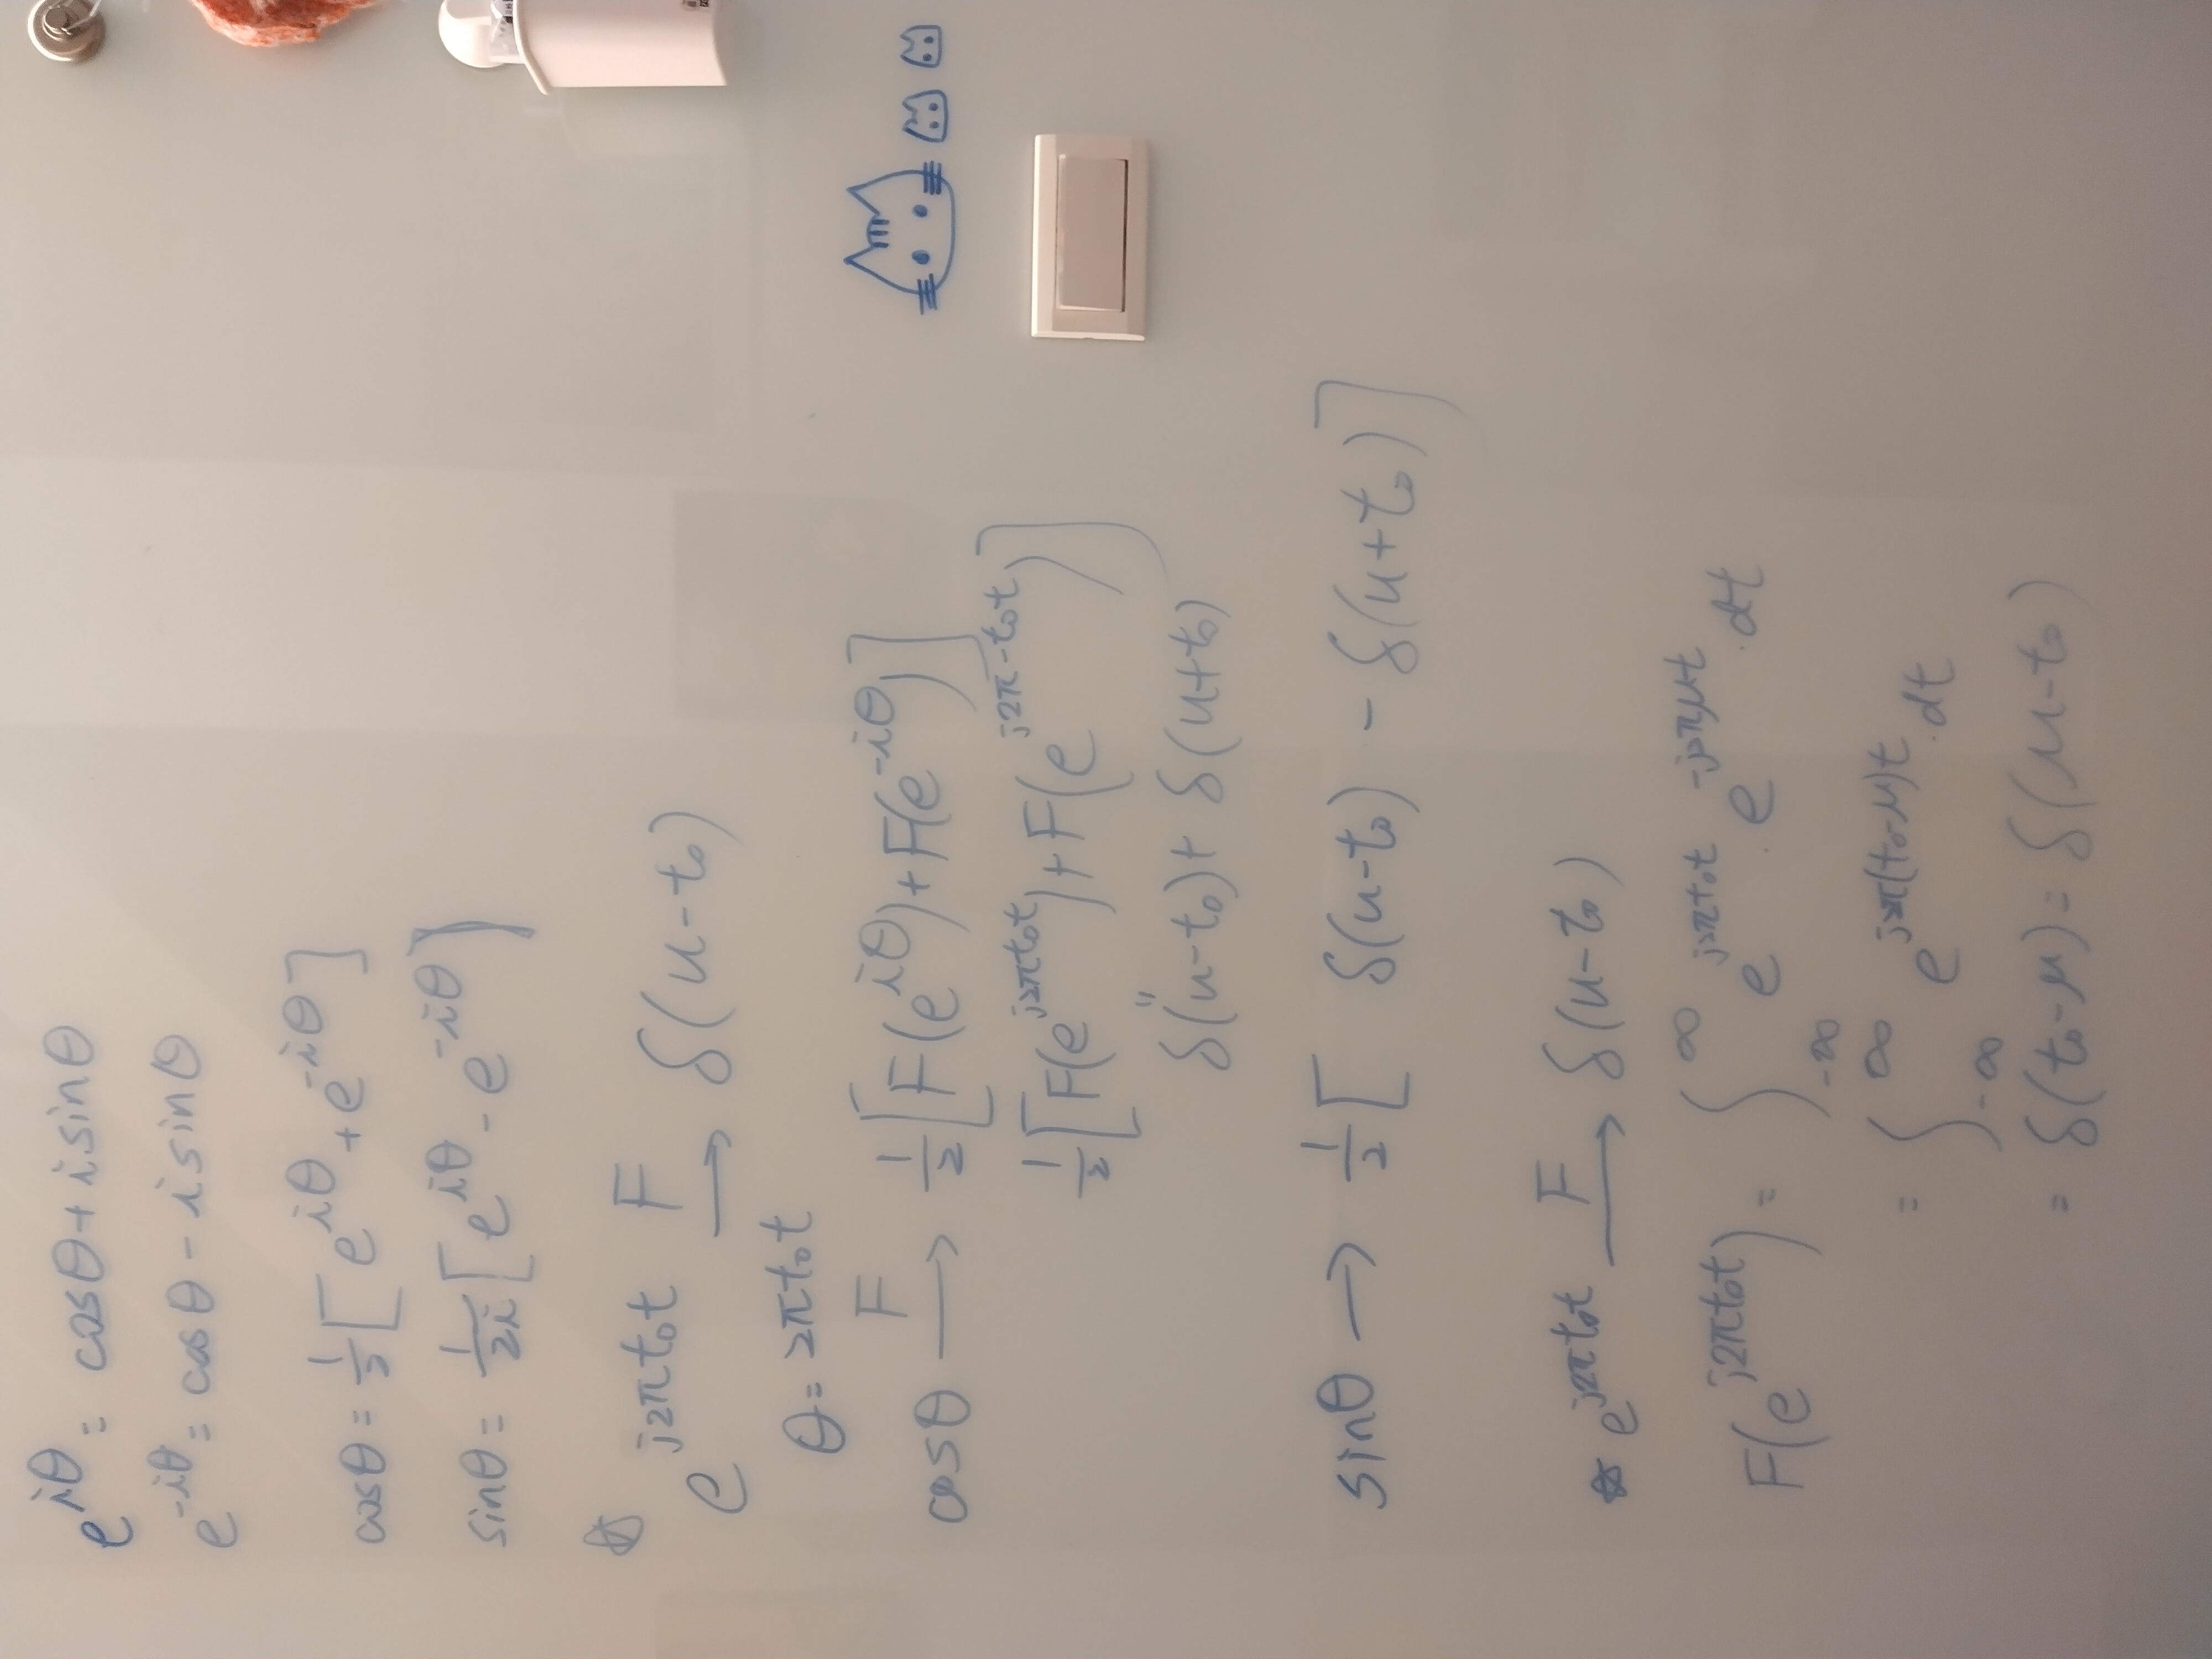 e^{iθ} = cosθ + i sinθ
e^{-iθ} = cosθ - i sinθ
cosθ = 1/2 [ e^{iθ} + e^{-iθ} ]
sinθ = 1/2i [ e^{iθ} - e^{-iθ} ]
☆
e^{j2πt₀t} F→ δ(u-t₀)
θ = 2πt₀t
cosθ F→ 1/2 [ F(e^{iθ}) + F(e^{-iθ}) ]
1/2 [ F(e^{j2πt₀t}) + F(e^{j2π-t₀t}) ]
"
δ(u-t₀) + δ(u+t₀)
sinθ → 1/2 [ δ(u-t₀) - δ(u+t₀) ]
☆ e^{j2πt₀t} F→ δ(u-t₀)
F(e^{j2πt₀t}) = ∫_{-∞}^{∞} e^{j2πt₀t} · e^{-j2πμt} · dt
= ∫_{-∞}^{∞} e^{j2π(t₀-μ)t} · dt
= δ(t₀-μ) = δ(μ-t₀)